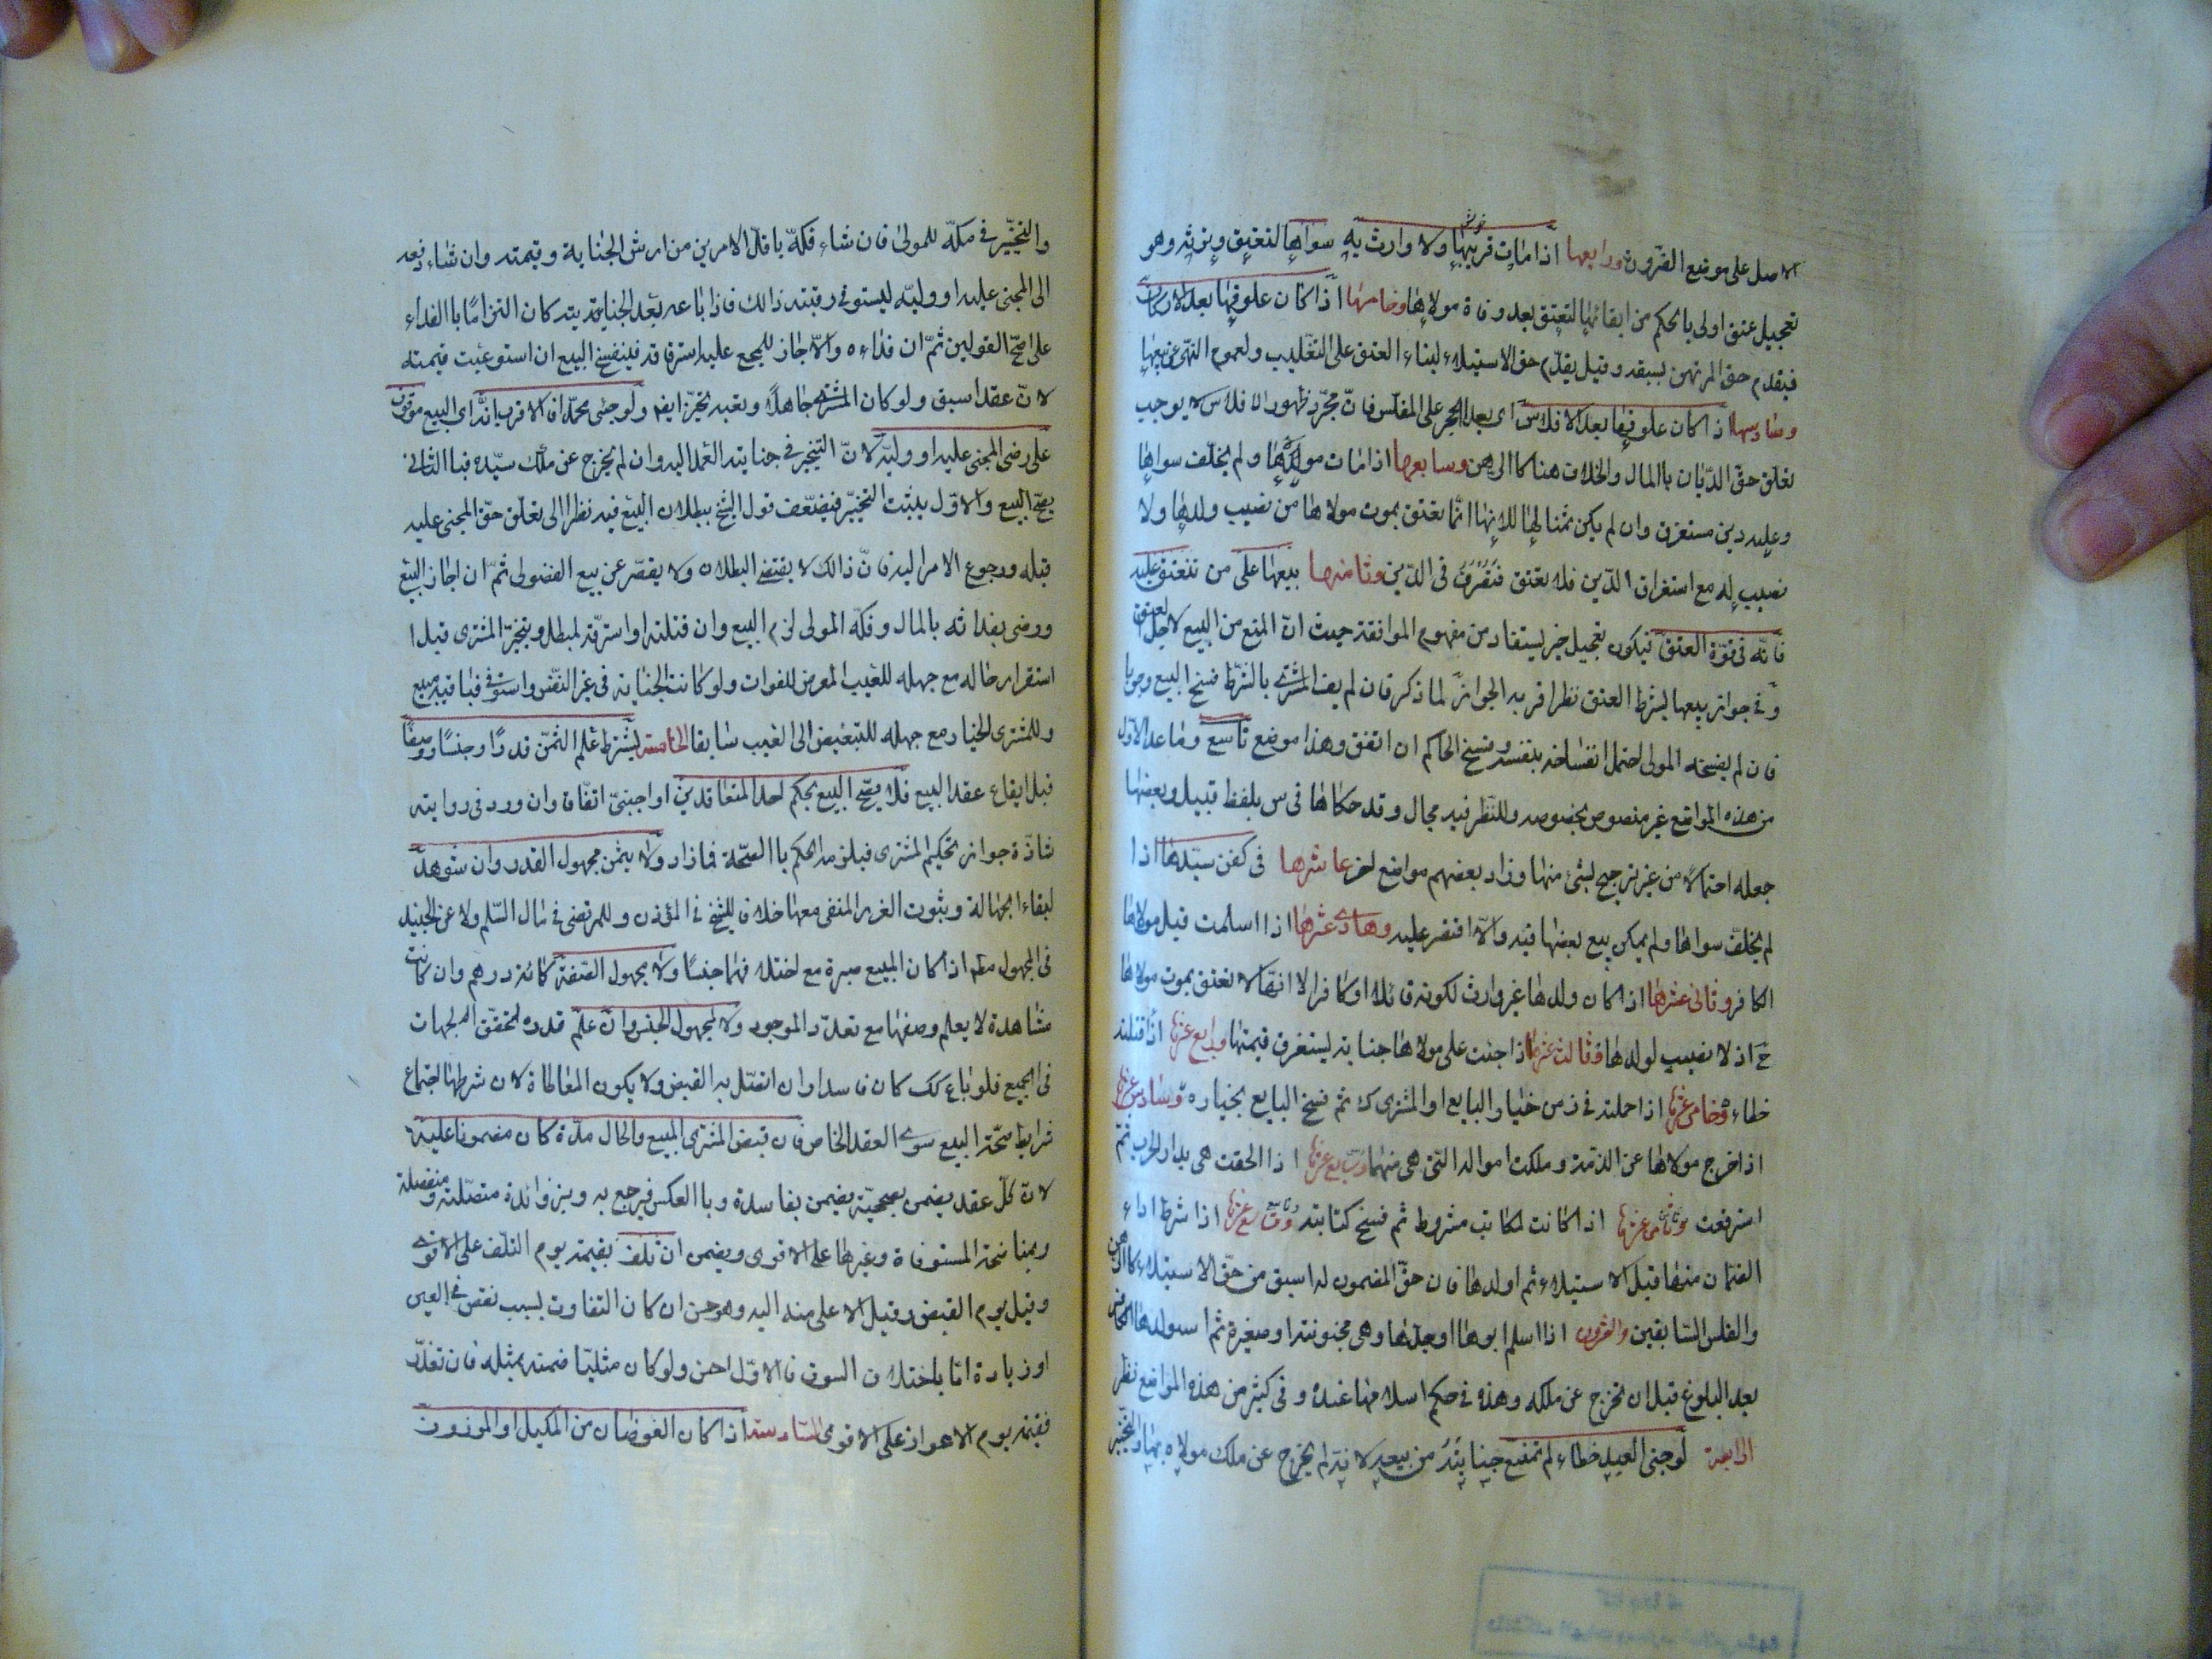 الاصل على موضع الضرورة ورابعها اذا مات قريبها ولا وارث له سواها لتعتق وترثه وهو
تعجيل عتق اولى بالحكم من ابقائها لتعتق بعد وفاة مولاها وخامسها اذا كان علوقها بعد الارتهان
فيقدم حق المرتهن لسبقه وقيل يقدم حق الاستيلاء لبناء العتق على التغليب ولعموم النهى عن بيعها
وسادسها اذا كان علوقها بعد الافلاس اى بعد الحجر على المفلس فان مجرد ظهور الافلاس لا يوجب
تعلق حق الديان باالمال والخلاف هنا كاالرهن وسابعها اذا مات مولاها ولم يخلف سواها
وعليه دين مستغرق وان لم يكن ثمنا لها لانها انما تعتق بموت مولاها من نصيب ولدها ولا
نصيب له مع استغراق الدين فلا تعتق فتصرف فى الدين وثامنها بيعها على من تنعتق عليه
فانه فى قوة العتق فيكون تعجيل خير يستفاد من مفهوم الموافقة حيث ان المنع من البيع لاجل العتق
وفى جواز بيعها بشرط العتق نظر اقربه الجواز لما ذكر فان لم يف المشترى بالشرط فسخ البيع وجوبا
فان لم يفسخه المولى احتمل انفساخه بنفسه وفسخ الحاكم ان اتفق وهذا موضع تاسع وما عدا الاول
من هذه المواضع غير منصوص بخصوصه وللنظر فيه مجال وقد حكاها فى س بلفظ قيل وبعضها
جعله احتمالا من غير ترجيح لشئ منها وزاد بعضهم مواضع اخر عاشرها فى كفن سيدها اذا
لم يخلف سواها ولم يمكن بيع بعضها فيه والا اقتصر عليه وحادى عشرها اذا اسلمت قبل مولاها
الكافر وثانى عشرها اذا كان ولدها غير وارث لكونه قاتلا او كافرا لانها لا تعتق بموت مولاها
ح اذ لا نصيب لولدها وثالث عشرها اذا جنت على مولاها جناية تستغرق قيمتها ورابع عشرها اذا قتلته
خطاء وخامس عشرها اذا حملت فى زمن خيار البايع او المشترى ك ثم فسخ البايع بخياره وسادس عشرها
اذا خرج مولاها عن الذمة وملكت امواله التى هى منها وسابع عشرها اذا الحقت هى بدار الحرب ثم
استرقت وثامن عشرها اذا كانت لمكاتب مشروط ثم فسخ كتابته وتاسع عشرها اذا شرط اداء
الضمان منها قبل الاستيلاء ثم اولدها فان حق المضمون له اسبق من حق الاستيلاء كاالرهن
والفلس السابقين والعشرون اذا اسلم ابوها او جدها وهى مجنونة او صغيرة ثم استولدها الكافر
بعد البلوغ قبل ان تخرج عن ملكه وهذه فى حكم اسلامها عنده وفى كثير من هذه المواضع نظر
الرابعة لو جنى العبد خطاء لم تمنع جنايته من بيعه لانه لم يخرج عن ملك مولاه بها والتخيير
والتخيير فى فكه للمولى فان شاء فكه باقل الامرين من ارش الجناية وقيمته وان شاء دفعه
الى المجنى عليه او وليه ليستوفى رقبته ذالك فاذا باعه بعد الجناية كان التزاما باالفداء
على اصح القولين ثم ان فداه والا جاز للمجنى عليه استرقاقه فينفسخ البيع ان استوعبت قيمته
لان عقد اسبق ولو كان المشترى جاهلا وبعيه تخير ايضا ولو جنى عمدا فالاقرب انه اى البيع موقوف
على رضى المجنى عليه او وليه لان التخيير فى جناية العمد اليه وان لم يخرج عن ملك سيده فباالثانى
يصح البيع والاول يثبت التخيير فيضعف قول الشيخ ببطلان البيع فيه نظرا الى تعلق حق المجنى عليه
قبله ورجوع الامر اليه فان ذالك لا يقتضى البطلان ولا يقصر عن بيع الفضولى ثم ان اجاز البيع
ورضى بفدائه بالمال وفكه المولى لزم البيع وان قتله او استرقه بطل ويتخير المشترى قبل ا
استقرار حاله مع جهله للعيب المعرض للفوات ولو كانت الجناية فى غير النفس واستوفى فباقيه مبيع
وللمشترى الخيار مع جهله للتبعيض الى العيب سابقا الخامسة يشترط علم الثمن قدرا وجنسا ووصفا
قبل ايقاع عقد البيع فلا يصح البيع بحكم احد المتعاقدين او اجنبى اتفاقا وان ورد فى رواية
شاذة جواز تحكيم المشترى فيلزمه الحكم باالصحة فما زاد ولا بثمن مجهول القدر وان شوهد
لبقاء الجهالة وثبوت الغرر المنفى معها خلافا للشيخ فى الموزون وللمرتضى فى مال السلم ولابن الجنيد
فى المجهول مطم اذا كان المبيع صبرة مع اختلافهما جنسا ولا مجهول الصفة كمائة درهم وان كانت
مشاهدة لا يعلم وصفها مع تعدد الموجود ولا مجهول الجنس وان علم قدره لتحقق الجهات
فى الجميع فلو باع كك كان فاسدا وان اتصل به القبض ولا يكون المعاطاة لان شرطها اجتماع
شرايط صحة البيع سوى العقد الخاص فان قبض المشترى المبيع والحال هذه كان مضمونا عليه
لان كل عقد يضمن بصحيحه يضمن بفاسده وباالعكس فيرجع به وبزوائده متصلة ومنفصلة
وبمنافعه المستوفاة وغيرها على الاقوى ويضمن ان تلف بقيمته يوم التلف على الاقوى
وقيل يوم القبض وقيل الاعلى منه اليه وهو حسن ان كان التفاوت بسبب نقص فى العين
او زيادة اما باختلاف السوق فالاول احسن ولو كان مثليا ضمنه بمثله فان تعذر
فقيمته يوم الاعواز على الاقوى السادسة اذا كان العوضان من المكيل او الموزون